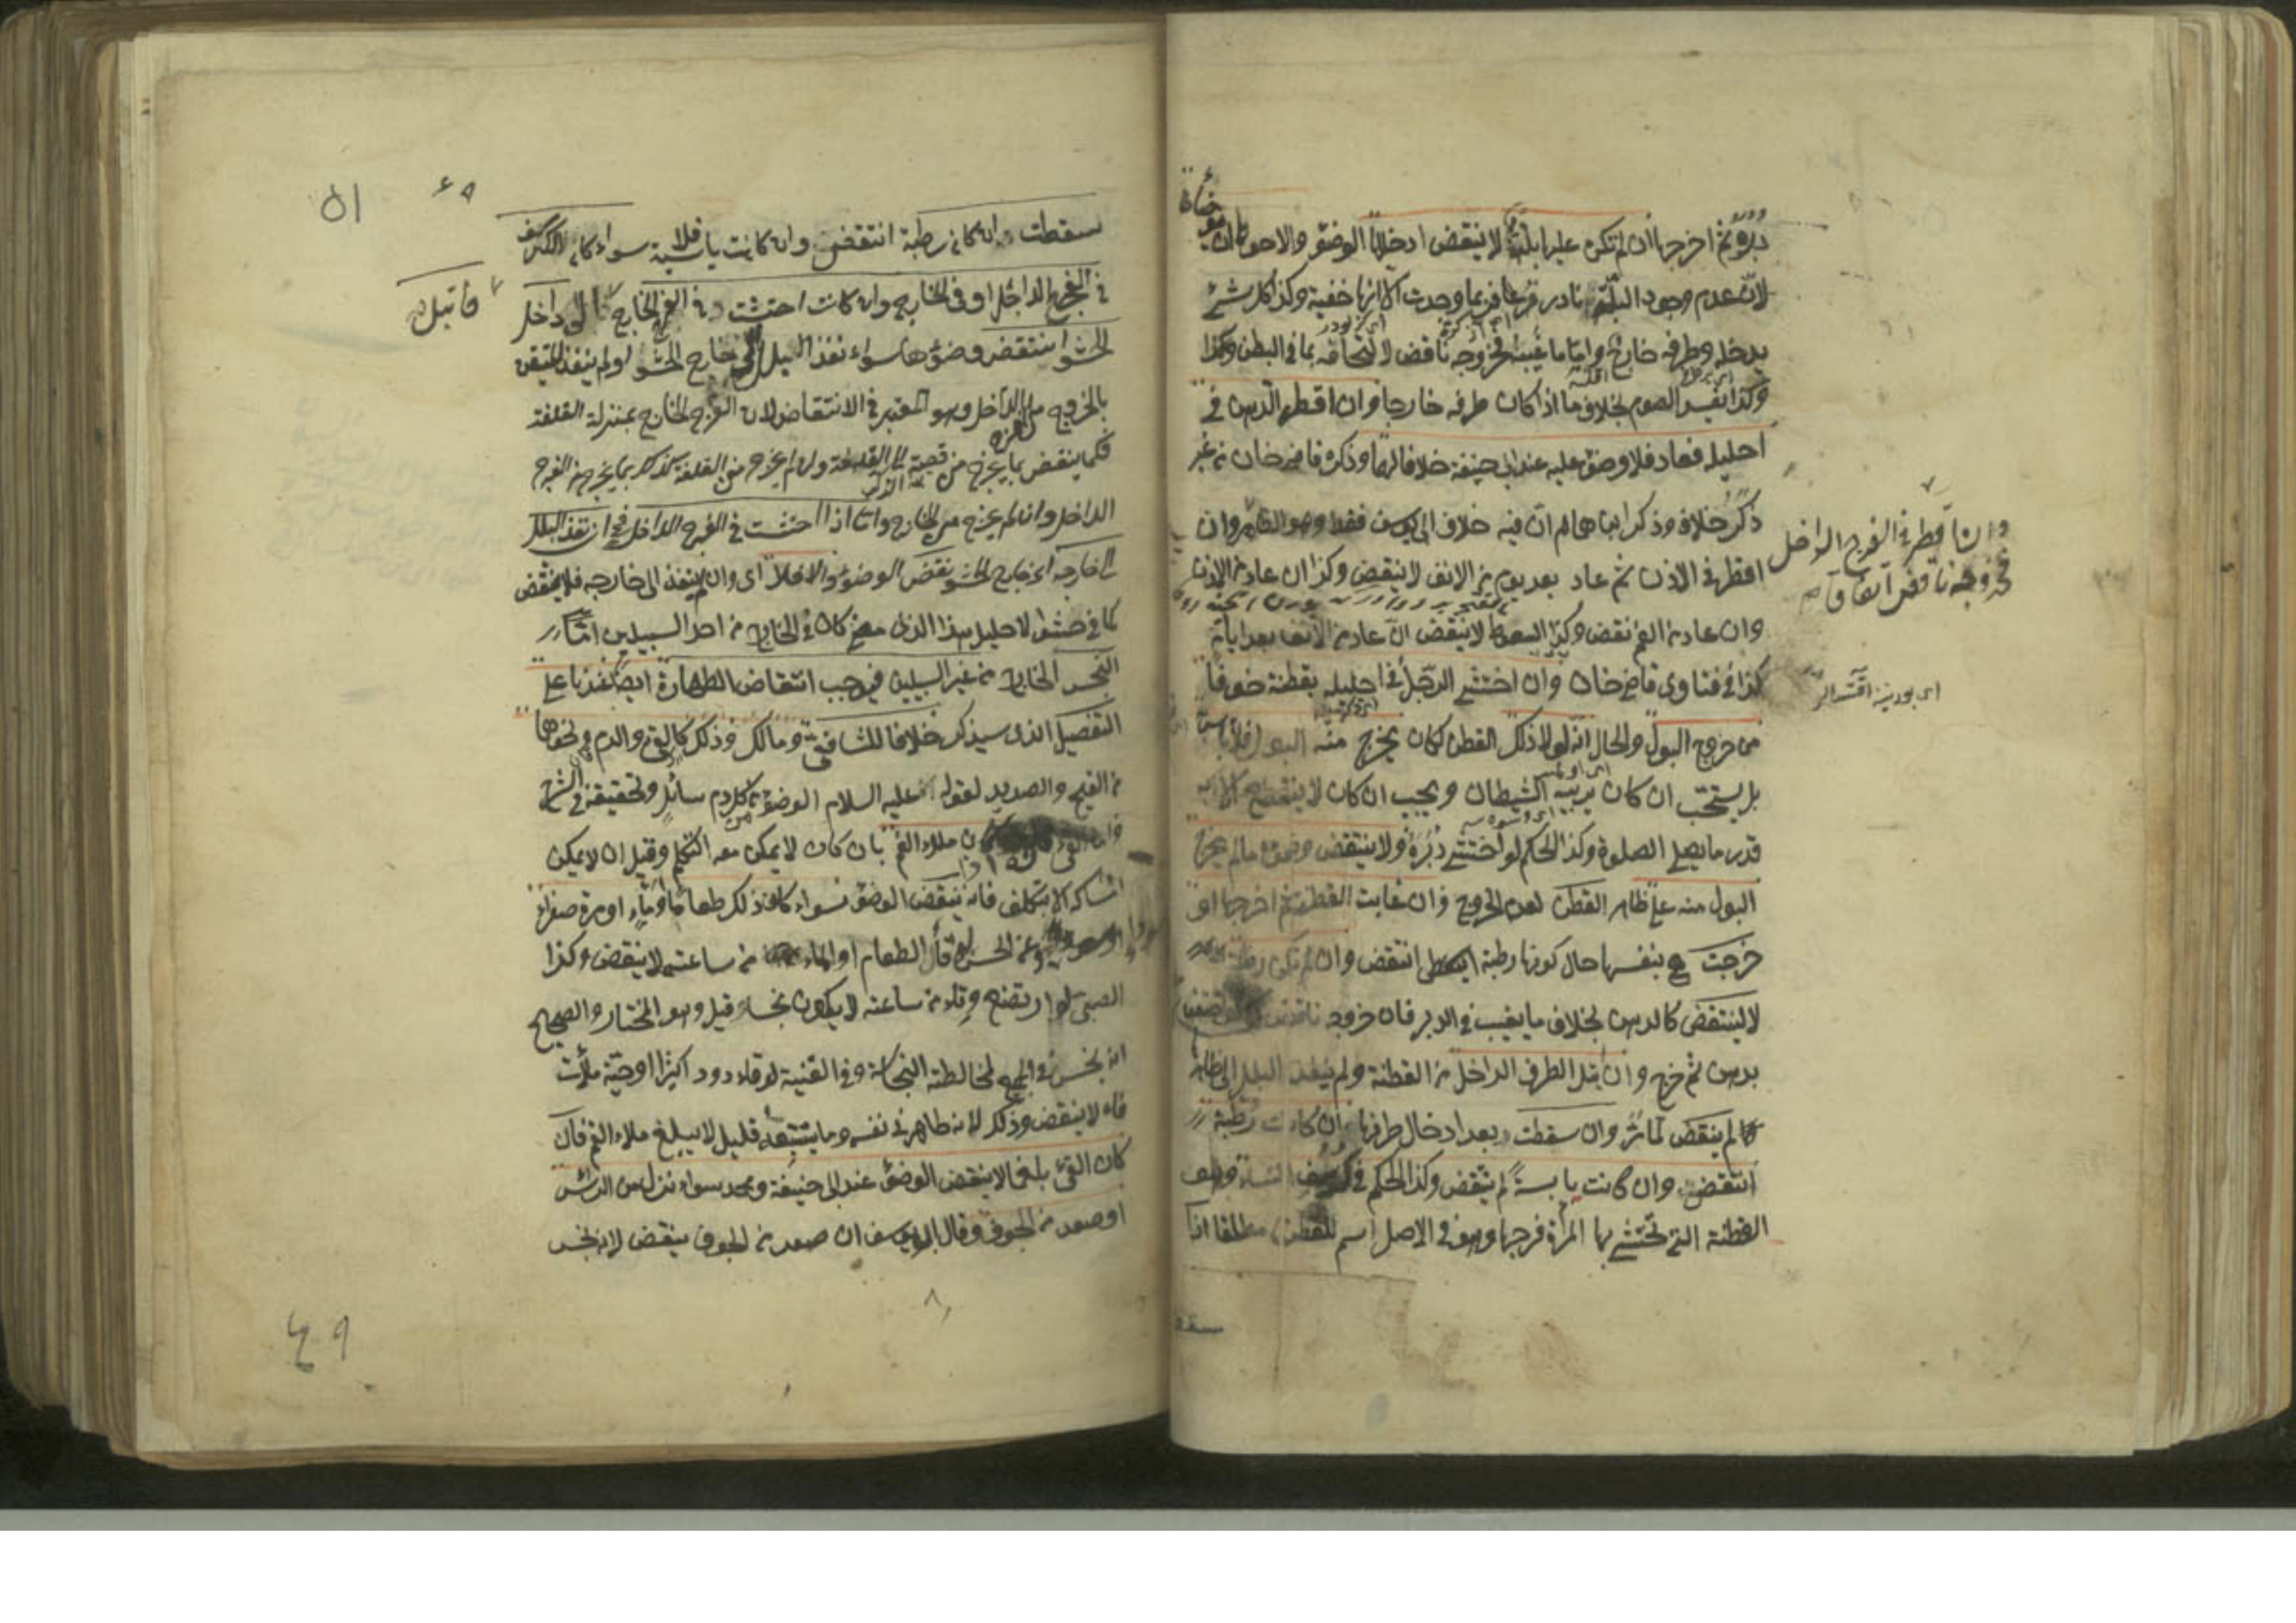 دبره ثم اخرجها ان لم تكن عليها بلة لا ينقض ادخالها الوضوء والاحوط ان يتوضأ
لان عدم وجود البلة نادر فربما وجدت الا انها خفية وكذا كل شئ
يدخله وطرفه خارج واما ما غيبه فخروجه ناقض لالتحاقه بما في البطن وكذا
وكذا يفسد الصوم بخلاف ما اذا كان طرفه خارجا وان اقطر الدهن في
احليله فعاد فلا وضوء عليه عند ابي حنيفة خلافا لهما وذكره قاضي خان من غير
ذكر خلاف وذكر ابن الهمام ان فيه خلاف ابي يوسف فقط وهو الظاهر وان
اقطر في الاذن ثم عاد بعد يوم من الانف لا ينقض وكذا ان عاد من الاذن
وان عاد من الفم نقض وكذا السعوط لا ينقض ان عاد من الانف بعد ايام
كذا في فتاوى قاضي خان وان احتشى الرجل في احليله بقطنة خوفا
من خروج البول والحال انه لولا ذلك القطن لكان يخرج منه البول فلا بأس
بل يستحب ان كان يريبه الشيطان ويجب ان كان لا ينقطع الا به
قدر ما يصلي الصلوة وكذا الحكم لو احتشى دبره ولا ينتقض وضوءه ما لم يخرج
البول منه على ظاهر القطن لعدم الخروج وان غابت القطنة ثم اخرجها او
خرجت هي بنفسها حال كونها رطبة انتقض وان لم تكن رطبة
لا ينتقض كالدهن بخلاف ما يغيب في الدبر فان خروجه ناقض
بدهن ثم خرج وان ابتل الطرف الداخل من القطنة ولم ينفذ البلل الى ظاهره
لم ينقض لما مر وان سقطت بعد ادخال طرفها ان كانت رطبة
انتقض وان كانت يابسة لم ينقض وكذا الحكم في كرسف النساء وهو
القطنة التي تحتشي بها المرأة فرجها وهو في الاصل اسم للقطن مطلقا اذا
وان اقطر في الفرج الداخل
فخروجه ناقض اتفاقا
سقط
٥١
سقطت ان كانت رطبة انتقض وان كانت يابسة فلا سواء كان الكرسف
في الفرج الداخل او في الخارج وان كانت احتشت في الفرج الخارج الى داخل
فابتل
الحشو انتقض وضوءها سواء نفذ البلل الى خارج الحشو او لم ينفذ للتيقن
بالخروج من الداخل وهو المعتبر في الانتقاض لان الفرج الخارج بمنزلة القلفة
فكما ينقض بما يخرج من قصبة الذكر الى القلفة وان لم يخرج من القلفة كذلك بما يخرج من الفرج
الداخل وان لم يخرج من الخارج واما اذا احتشت في الفرج الداخل فحينئذ ان نفذ البلل
الى خارجه اي خارج الحشو نقض الوضوء والا فلا اي وان لم ينفذ الى خارجه فلا ينقض
كما في حشو الاحليل هذا الذي كان في الخارج من احد السبيلين اما
النجس الخارج من غير السبيلين فيوجب انتقاض الطهارة ايضا عندنا على
التفصيل الذي سيذكر خلافا للشافعي ومالك وذلك كالقئ والدم ونحوهما
من القيح والصديد لقوله عليه السلام الوضوء من كل دم سائل وتحقيقه في الشرح
ملاء الفم بان كان لا يمكن معه التكلم وقيل ان لا يمكن
امساكه الا بتكلف فانه ينقض الوضوء سواء كان ذلك طعاما او ماء او مرة صفراء
وعن الحسن لو قاء الطعام او الماء من ساعته لا ينقض وكذا
الصبي لو ارتضع وقاء من ساعته لا يكون نجسا قيل وهو المختار والصحيح
انه نجس في الجميع لمخالطته النجاسة وفي القنية لو قاء دودا كثيرا او حية ملأت
فاه لا ينقض وذلك لانه طاهر في نفسه وما يتبعه قليل لا يبلغ ملاء الفم فان
كان القئ بلغما لا ينقض الوضوء عند ابي حنيفة ومحمد سواء نزل من الرأس
او صعد من الجوف وقال ابو يوسف ان صعد من الجوف ينقض لانه نجس
٤٩